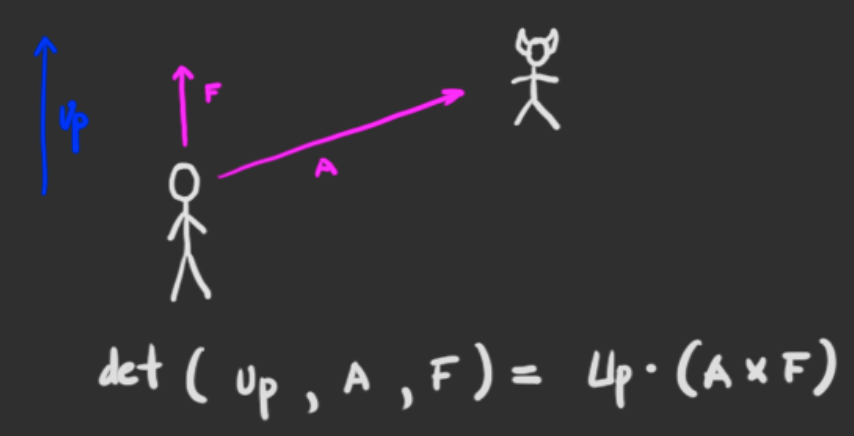 Up
F
A
det ( up , A , F ) = Up · (A x F)